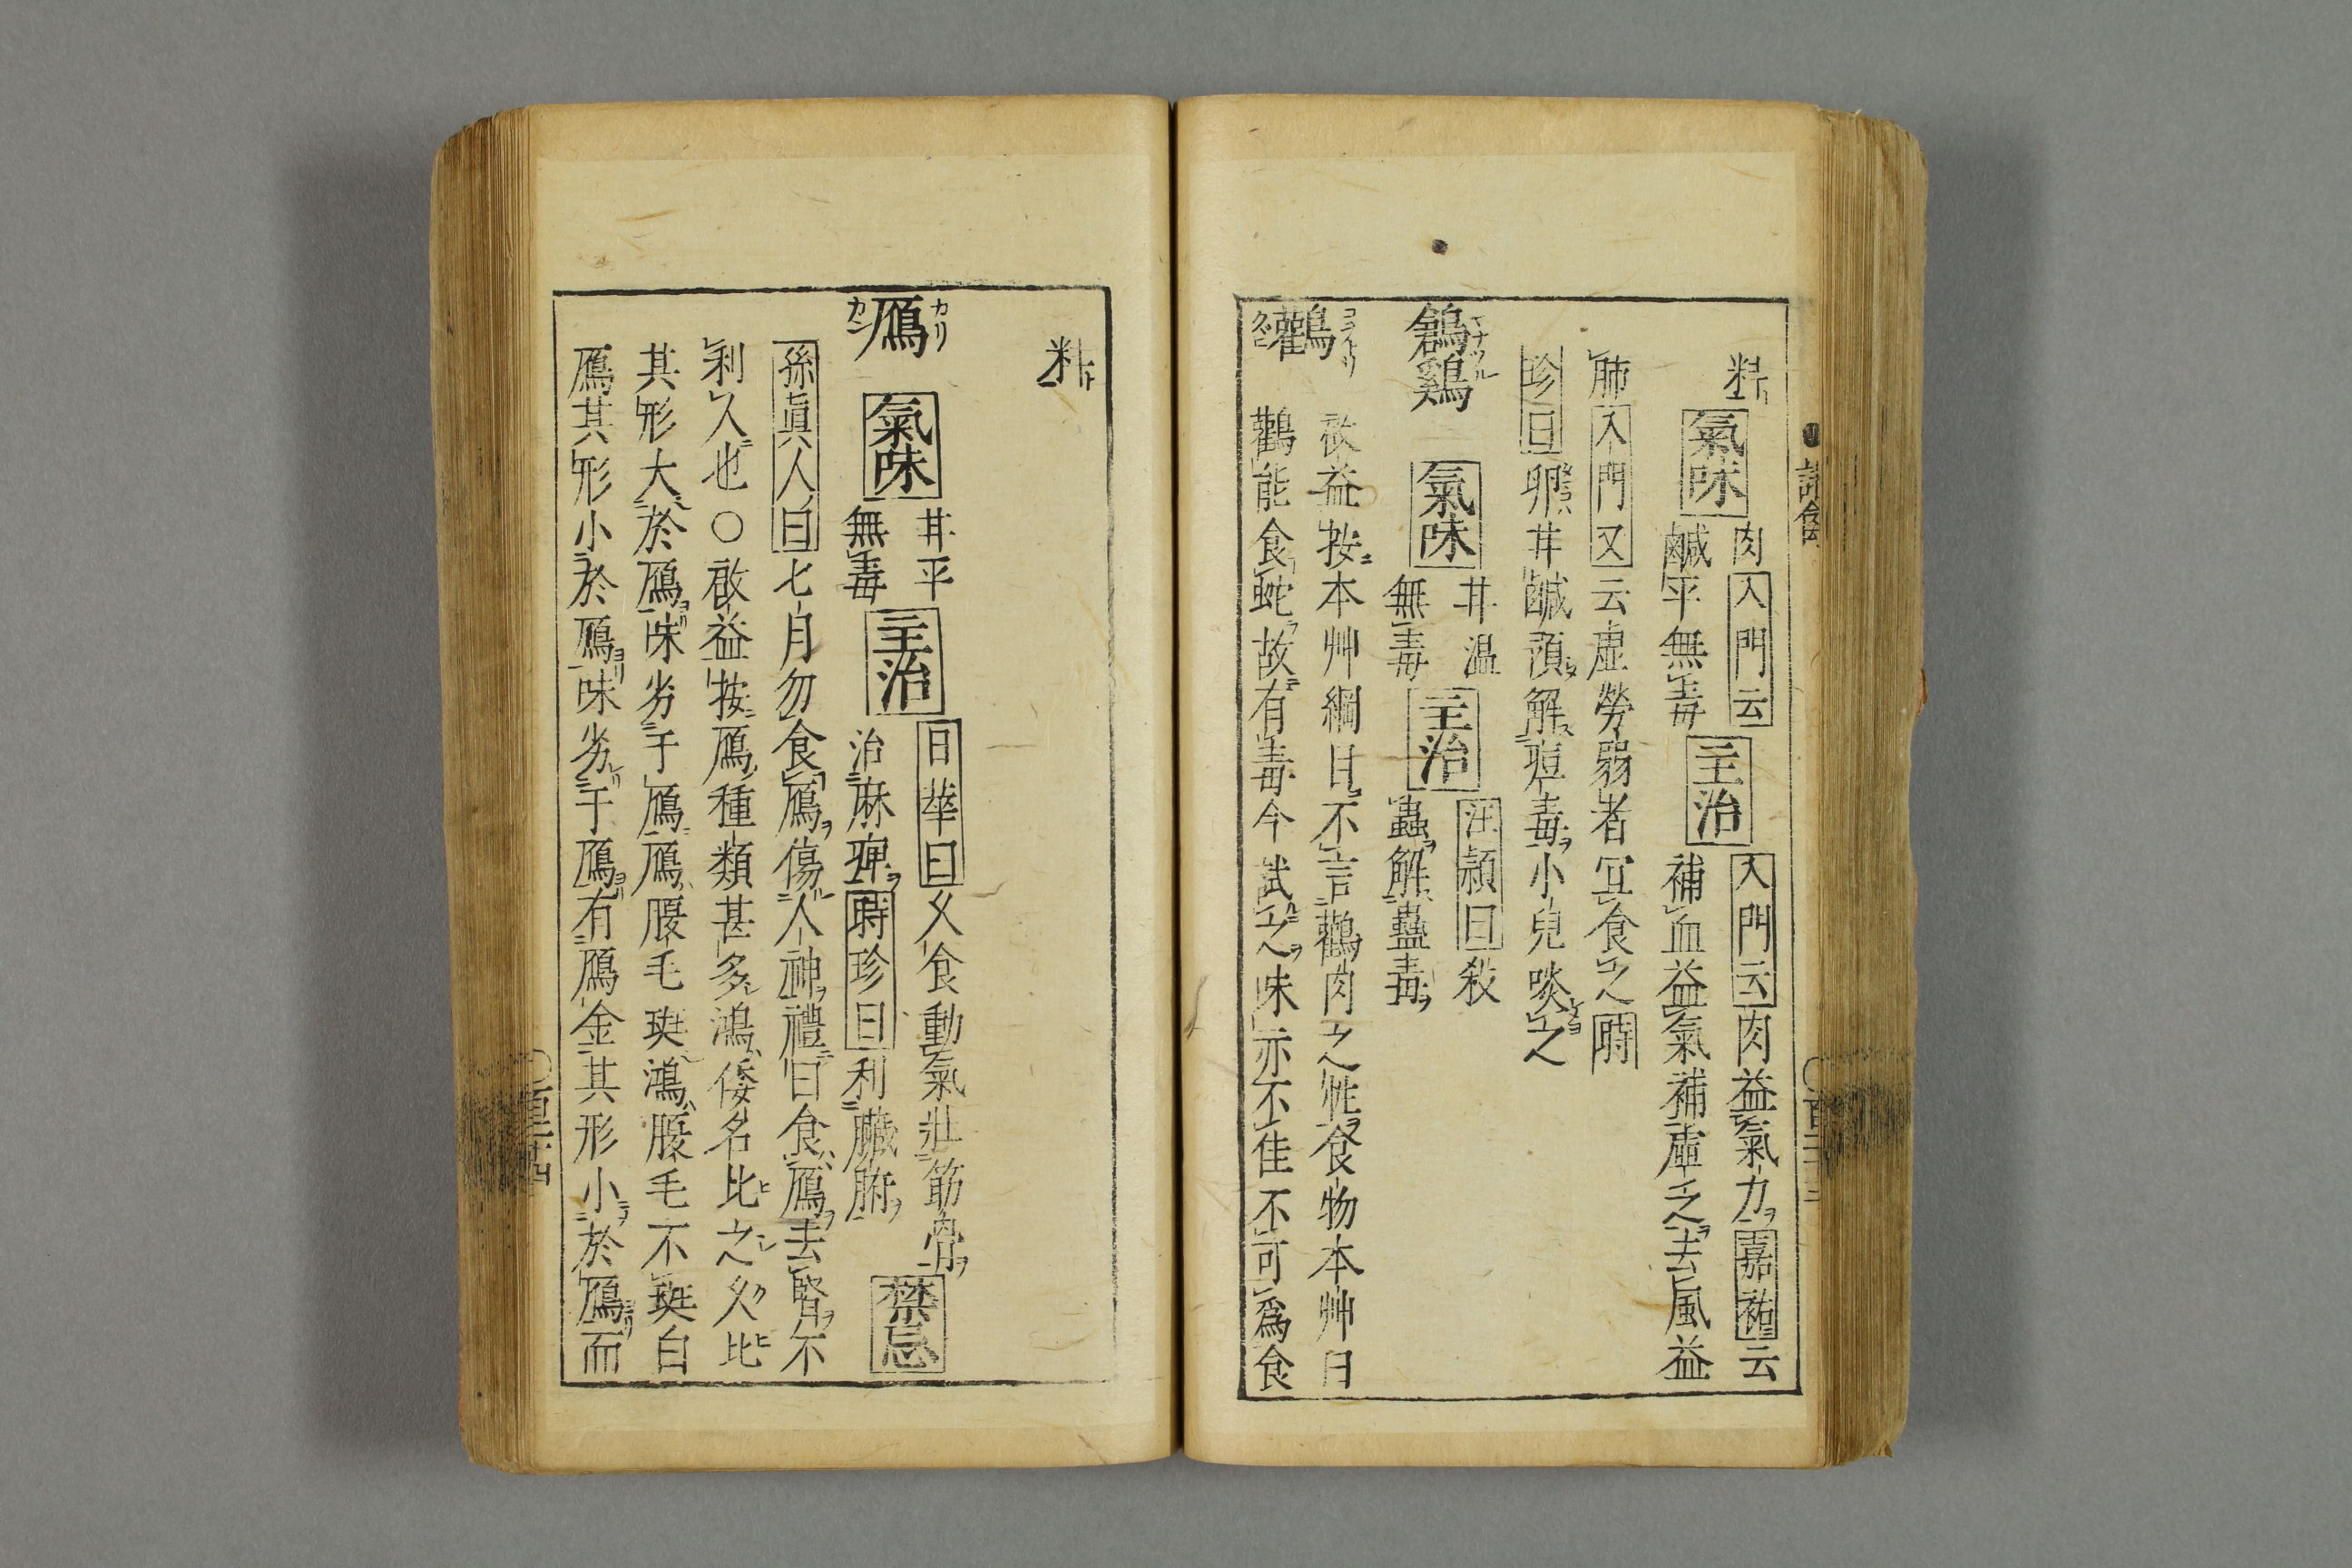 料
氣味
肉入門云
鹹平無毒
主治
入門云肉益氣力嘉祐云
補血益氣補虛乏去風益
肺入門又云虛勞弱者宜食之時
珍曰卵甘鹹預解痘毒小兒啖之
鶬鷄
氣味
甘温
無毒
主治
汪頴曰殺
蟲解蠱毒
啟益按本艸綱目不言鸛肉之性食物本艸曰
鸛
鸛能食蛇故有毒今試之味亦不佳不可爲食
料
鴈
カリ
カン
氣味
甘平
無毒
主治
日華曰久食動氣壯筋骨
治麻痺時珍曰利臟腑
禁忌
孫眞人曰七月勿食鴈傷人神禮曰食鴈去腎不
利人也○啟益按鴈種類甚多鴻倭名比之久比
其形大於鴈味劣于鴈鴈腹毛斑鴻腹毛不斑白
鴈其形小於鴈味劣于鴈有鴈金其形小於鴈而